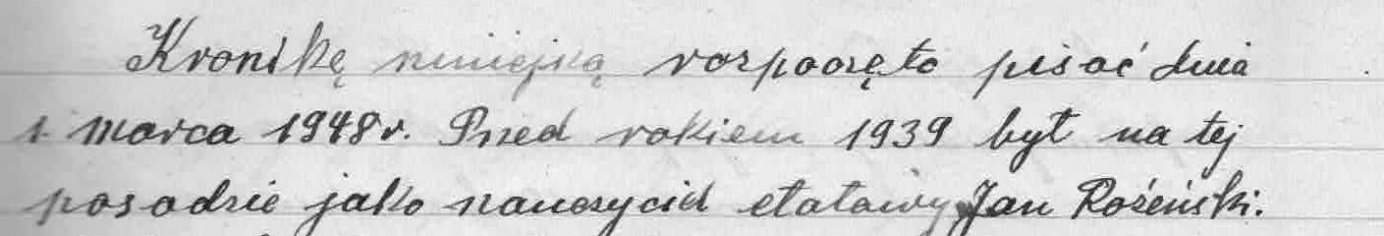 Kronikę niniejszą rozpoczęto pisać dnia
1. marca 1948 r. Przed rokiem 1939 był na tej
posadzie jako nauczyciel etatowy Jan Rożeński.